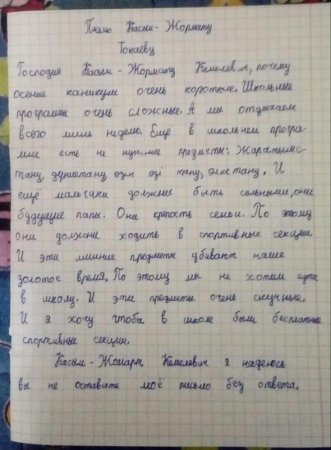 Писмо Касым - Жормату
Токаеву
Господин Касым - Жормату Кемелевич, почему
осеные каникулы очень короткие. Школьные
программы очень сложные. А мы отдыхаем
всего лиш неделю. Ещё в школьнои програ-
мме есть не нужные предметы: Жаратылыс-
тану, дуниетану, өзін өзі тану, элметану. И
ещё мальчики должны быть сильными, они
будущие папы. Они крепость семьи. По этому
они должны ходить в спортивные секции.
И эти лишние предметы убивают наше
золотое время. По этому мы не хотим идти
в школу. И эти предметы очень скучные.
И я хочу чтобы в школе были бесплатные
спортивные секции.
Касым - Жомарт Кемелевич я надеюсь
вы не оставите моё письмо без ответа.